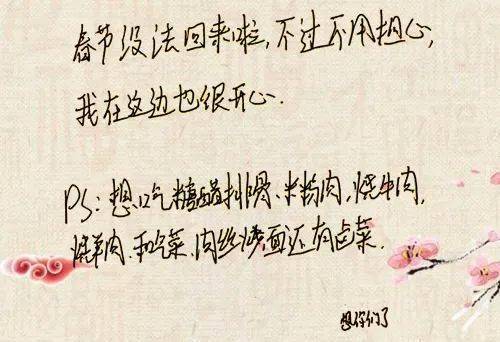 春节没法回来啦,不过不用担心,
我在这边也很开心.
PS:想吃糖醋排骨、米粉肉,烧牛肉,
烧羊肉、和菜、肉丝烫面还有卤菜.
想你们了